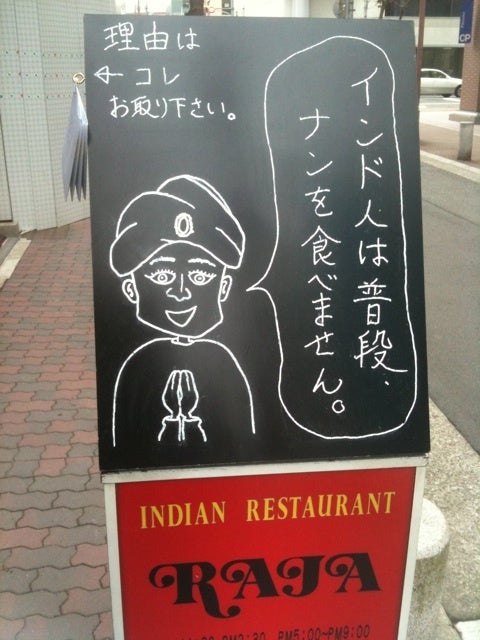 理由は
← コレ
お取り下さい。
インド人は普段、
ナンを食べません。
INDIAN RESTAURANT
RAJA
PM2:30 PM5:00~PM9:00
CP